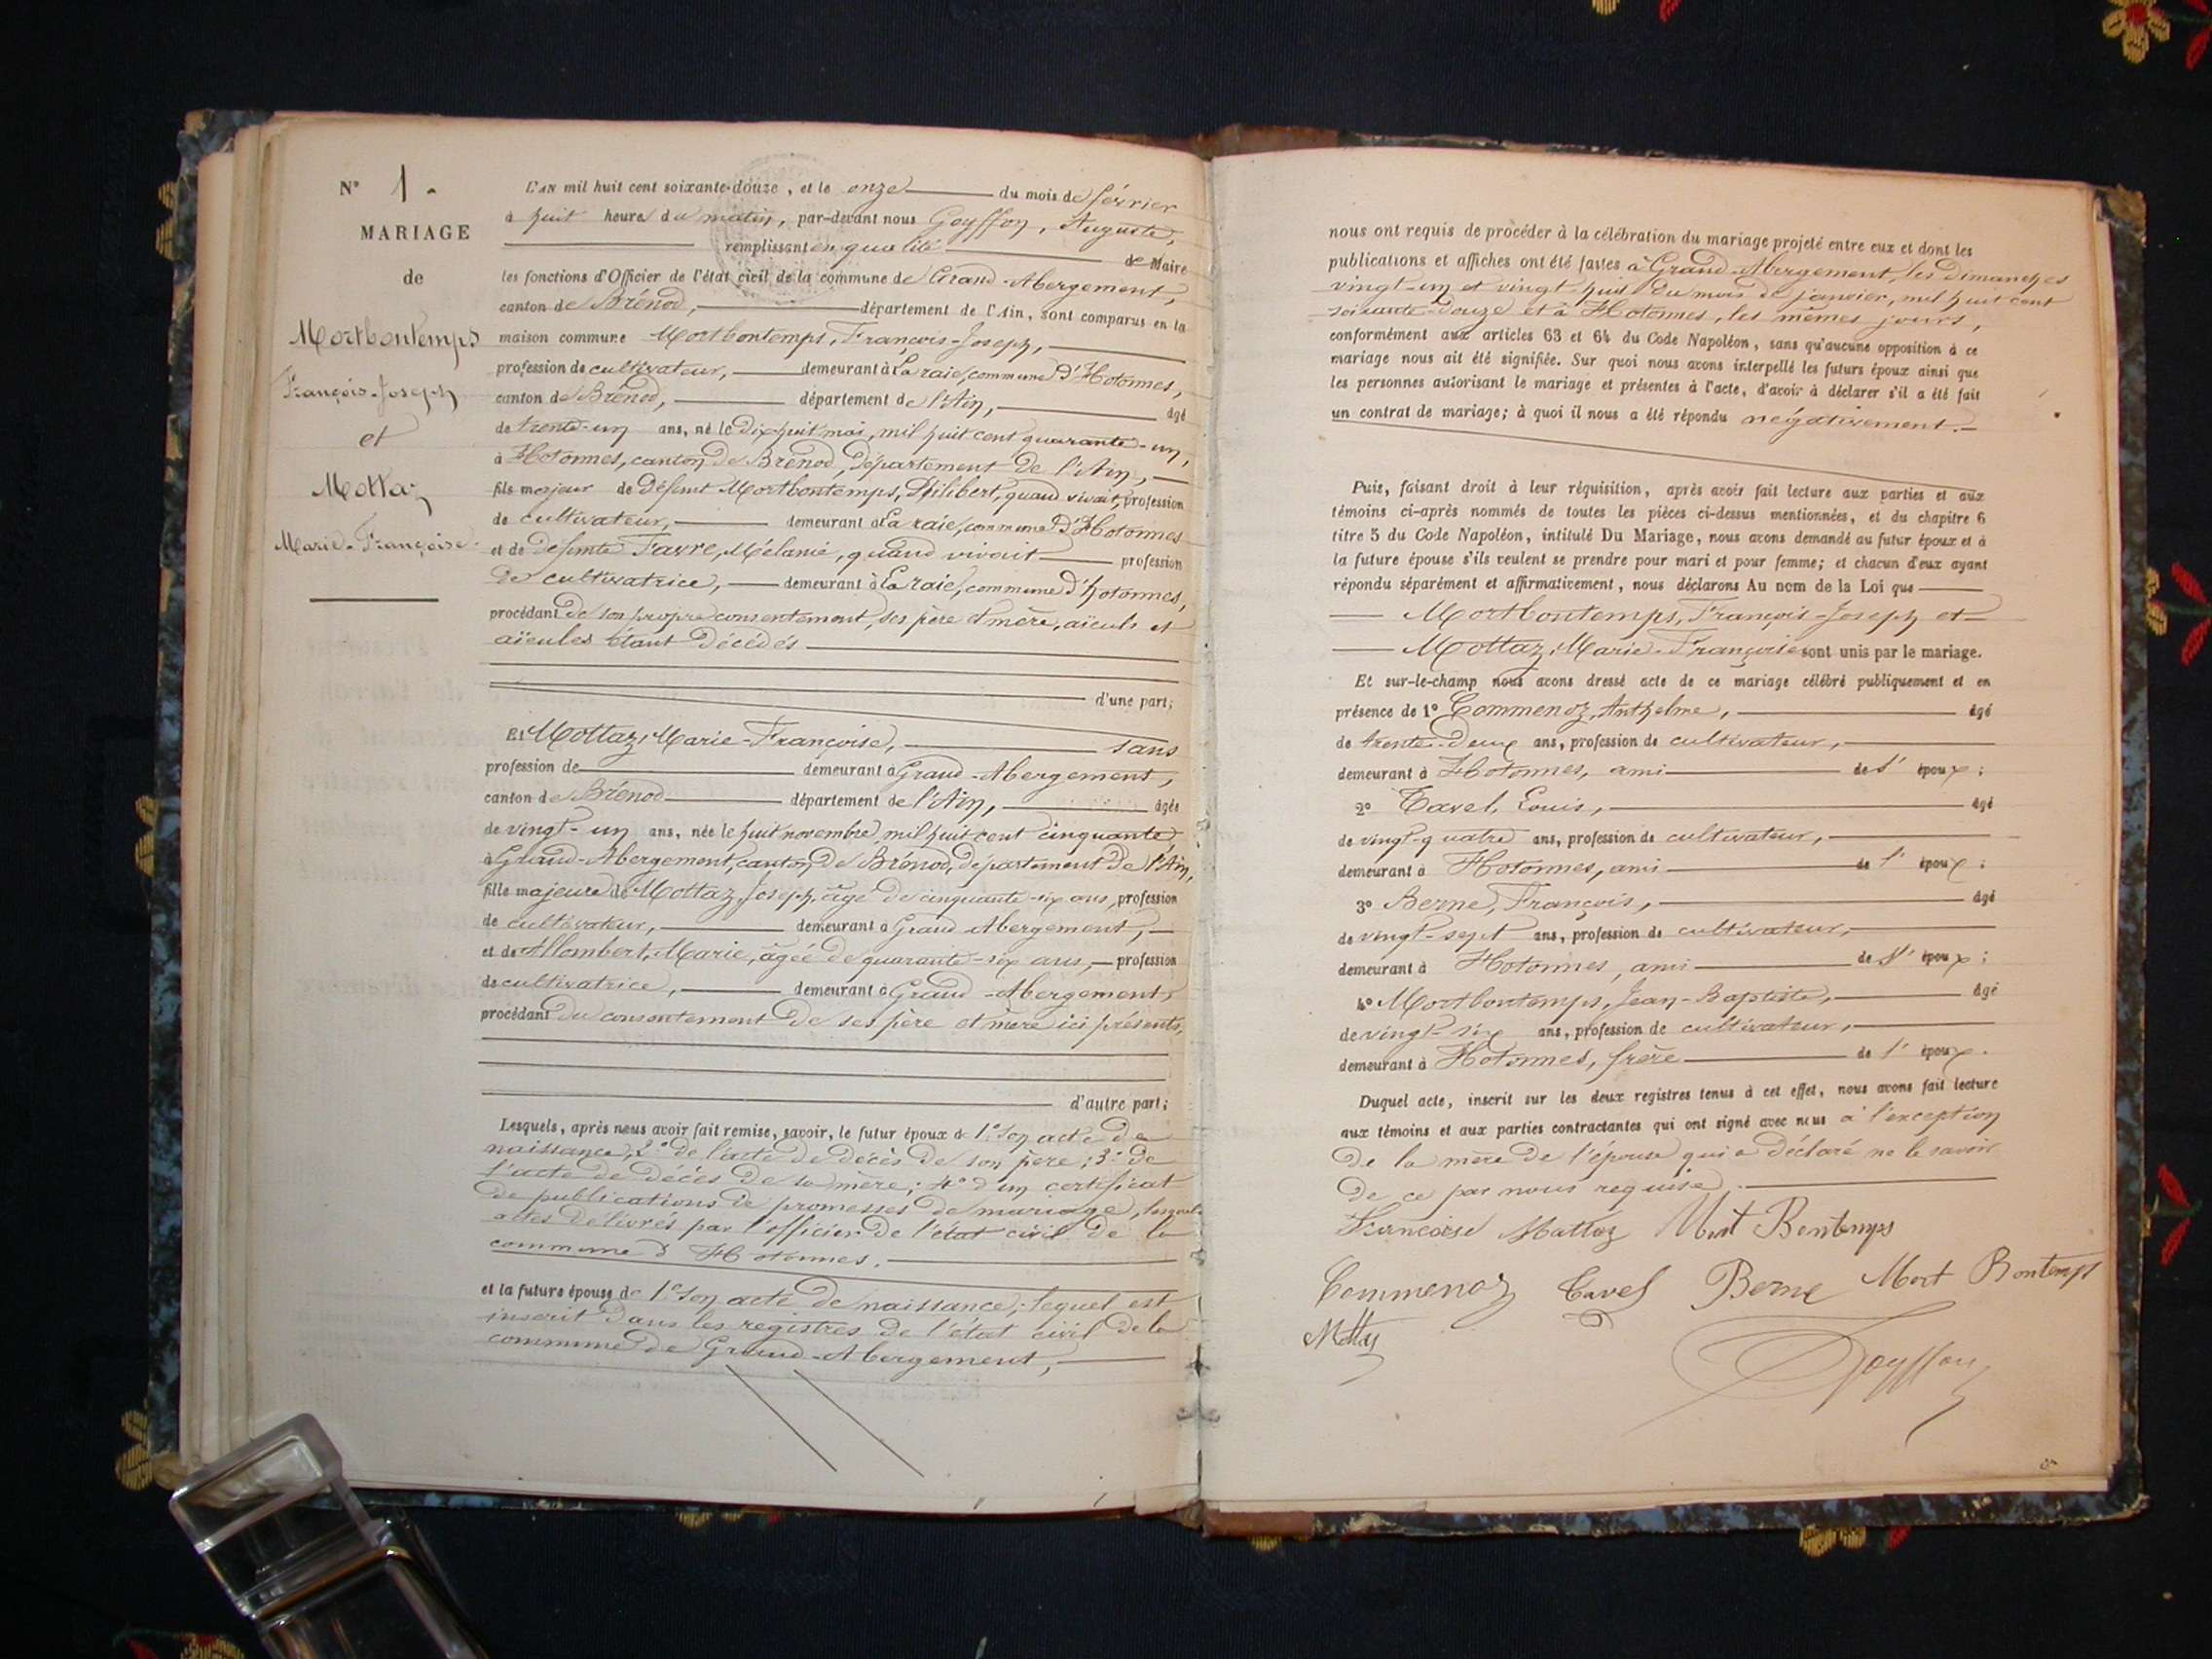 N° 1.
MARIAGE
de
Mortbontemps
François-Joseph
et
Mottaz
Marie-Françoise
L'AN mil huit cent soixante-douze, et le onze du mois de février
à huit heure du matin, par-devant nous Goyffon, Auguste,
remplissant en qualité de Maire
les fonctions d'Officier de l'état civil de la commune de Grand-Abergement,
canton de Brénod, département de l'Ain, sont comparus en la
maison commune Mortbontemps, François-Joseph,
profession de cultivateur, demeurant à La raie, commune d'Hotonnes,
canton de Brénod, département de l'Ain, âgé
de trente-un ans, né le dix huit mai, mil huit cent quarante-un,
à Hotonnes, canton de Brénod, département de l'Ain,
fils majeur de défunt Mortbontemps, Philibert, quand vivait, profession
de cultivateur, demeurant à La raie, commune d'Hotonnes
et de defunte Favre, Mélanie, quand vivait profession
de cultivatrice, demeurant à La raie, commune d'hotonnes,
procédant de son propre consentement, ses père et mère, aïeuls et
aïeules étant décédés
d'une part;
Et Mottaz, Marie-Françoise, sans
profession de demeurant à Grand-Abergement,
canton de Brénod département de l'Ain, âgée
de vingt-un ans, née le huit novembre, mil huit cent cinquante
à Grand-Abergement, canton de Brénod, département de l'Ain,
fille majeure de Mottaz, Joseph, âgé de cinquante-six ans, profession
de cultivateur, demeurant à Grand-Abergement,
et de Allombert, Marie, âgée de quarante-six ans, profession
de cultivatrice, demeurant à Grand-Abergement,
procédant du consentement de ses père et mère ici présents,
d'autre part;
Lesquels, après nous avoir fait remise, savoir, le futur époux de 1° son acte de
naissance; 2° de l'acte de décès de son père; 3° de
l'acte de décès de sa mère; 4° d'un certificat
de publications de promesses de mariage, lesquels
actes délivrés par l'officier de l'état civil de la
commune d'Hotonnes.
et la future épouse de 1° son acte de naissance; lequel est
inscrit dans les registres de l'état civil de la
commune de Grand-Abergement,
nous ont requis de procéder à la célébration du mariage projeté entre eux et dont les
publications et affiches ont été faites à Grand-Abergement, les dimanches
vingt-un et vingt-huit du mois de janvier, mil huit cent
soixante-douze et à Hotonnes, les mêmes jours,
conformément aux articles 63 et 64 du Code Napoléon, sans qu'aucune opposition à ce
mariage nous ait été signifiée. Sur quoi nous avons interpellé les futurs époux ainsi que
les personnes autorisant le mariage et présentes à l'acte, d'avoir à déclarer s'il a été fait
un contrat de mariage; à quoi il nous a été répondu négativement.
Puis, faisant droit à leur réquisition, après avoir fait lecture aux parties et aux
témoins ci-après nommés de toutes les pièces ci-dessus mentionnées, et du chapitre 6
titre 5 du Code Napoléon, intitulé Du Mariage, nous avons demandé au futur époux et à
la future épouse s'ils veulent se prendre pour mari et pour femme; et chacun d'eux ayant
répondu séparément et affirmativement, nous déclarons Au nom de la Loi que
Mortbontemps, François-Joseph et
Mottaz, Marie-Françoise sont unis par le mariage.
Et sur-le-champ nous avons dressé acte de ce mariage célébré publiquement et en
présence de 1° Commenoz, Anthelme, âgé
de trente-deux ans, profession de cultivateur,
demeurant à Hotonnes, ami de l' époux;
2° Tavel, Louis, âgé
de vingt-quatre ans, profession de cultivateur,
demeurant à Hotonnes, ami de l' époux;
3° Berne, François, âgé
de vingt-sept ans, profession de cultivateur,
demeurant à Hotonnes, ami de l' époux;
4° Mortbontemps, Jean-Baptiste, âgé
de vingt-six ans, profession de cultivateur,
demeurant à Hotonnes, frère de l' époux.
Duquel acte, inscrit sur les deux registres tenus à cet effet, nous avons fait lecture
aux témoins et aux parties contractantes qui ont signé avec nous à l'exception
de la mère de l'épouse qui a déclaré ne le savoir
de ce par nous requise.
Francoise Mottaz Mort Bontemps
Commenoz Tavel Berne Mort Bontemps
Mottaz
Goyffon